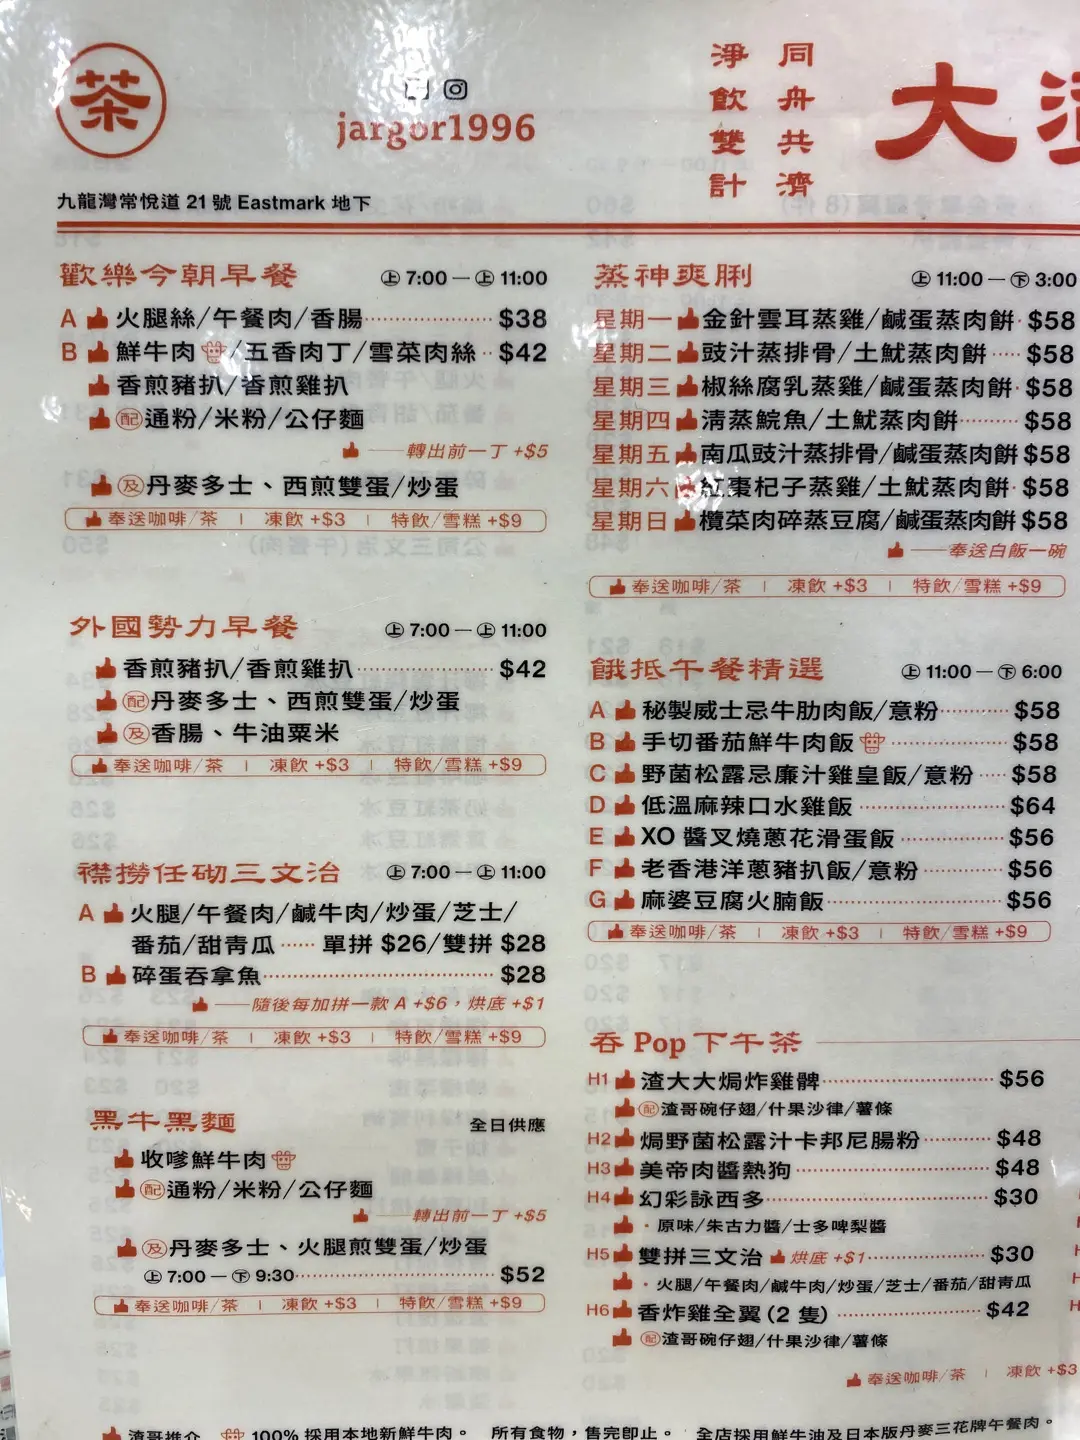 茶
jargor1996
同舟共濟
淨飲雙計
大
九龍灣常悅道 21 號 Eastmark 地下
歡樂今朝早餐 上 7:00 — 上 11:00
A 火腿絲/午餐肉/香腸 $38
B 鮮牛肉/五香肉丁/雪菜肉絲 $42
香煎豬扒/香煎雞扒
配 通粉/米粉/公仔麵
轉出前一丁 +$5
及 丹麥多士、西煎雙蛋/炒蛋
奉送咖啡/茶 | 凍飲 +$3 | 特飲/雪糕 +$9
外國勢力早餐 上 7:00 — 上 11:00
香煎豬扒/香煎雞扒 $42
配 丹麥多士、西煎雙蛋/炒蛋
及 香腸、牛油粟米
奉送咖啡/茶 | 凍飲 +$3 | 特飲/雪糕 +$9
襟撈任砌三文治 上 7:00 — 上 11:00
A 火腿/午餐肉/鹹牛肉/炒蛋/芝士/
番茄/甜青瓜 單拼 $26/雙拼 $28
B 碎蛋吞拿魚 $28
隨後每加拼一款 A +$6，烘底 +$1
奉送咖啡/茶 | 凍飲 +$3 | 特飲/雪糕 +$9
黑牛黑麵 全日供應
收嗲鮮牛肉
配 通粉/米粉/公仔麵
轉出前一丁 +$5
及 丹麥多士、火腿煎雙蛋/炒蛋
上 7:00 — 下 9:30 $52
奉送咖啡/茶 | 凍飲 +$3 | 特飲/雪糕 +$9
蒸神爽脷 上 11:00 — 下 3:00
星期一 金針雲耳蒸雞/鹹蛋蒸肉餅 $58
星期二 豉汁蒸排骨/土魷蒸肉餅 $58
星期三 椒絲腐乳蒸雞/鹹蛋蒸肉餅 $58
星期四 清蒸鯇魚/土魷蒸肉餅 $58
星期五 南瓜豉汁蒸排骨/鹹蛋蒸肉餅 $58
星期六 紅棗杞子蒸雞/土魷蒸肉餅 $58
星期日 欖菜肉碎蒸豆腐/鹹蛋蒸肉餅 $58
奉送白飯一碗
奉送咖啡/茶 | 凍飲 +$3 | 特飲/雪糕 +$9
餓抵午餐精選 上 11:00 — 下 6:00
A 秘製威士忌牛肋肉飯/意粉 $58
B 手切番茄鮮牛肉飯 $58
C 野菌松露忌廉汁雞皇飯/意粉 $58
D 低溫麻辣口水雞飯 $64
E XO 醬叉燒蔥花滑蛋飯 $56
F 老香港洋蔥豬扒飯/意粉 $56
G 麻婆豆腐火腩飯 $56
奉送咖啡/茶 | 凍飲 +$3 | 特飲/雪糕 +$9
吞 Pop 下午茶
H1 渣大大焗炸雞髀 $56
配 渣哥碗仔翅/什果沙律/薯條
H2 焗野菌松露汁卡邦尼腸粉 $48
H3 美帝肉醬熱狗 $48
H4 幻彩詠西多 $30
・原味/朱古力醬/士多啤梨醬
H5 雙拼三文治 烘底 +$1 $30
・火腿/午餐肉/鹹牛肉/炒蛋/芝士/番茄/甜青瓜
H6 香炸雞全翼 (2 隻) $42
配 渣哥碗仔翅/什果沙律/薯條
奉送咖啡/茶 | 凍飲 +$3
渣哥推介 100% 採用本地新鮮牛肉。 所有食物，售完即止。 全店採用鮮牛油及日本版丹麥三花牌午餐肉。